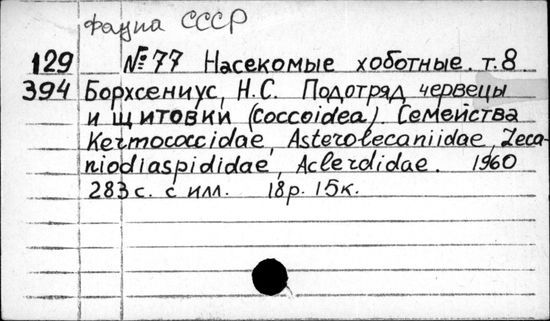 фауна СССР
129 №77 Насекомые хоботные. т.8
394 Борхсениус, Н.С. Подотряд червецы
и щитовки (Coccoidea). Семейства
Kermococcidae, Asterolecaniidae, Leca-
niodiaspididae, Aclerdidae. 1960
283 с. с илл. 18р. 15к.